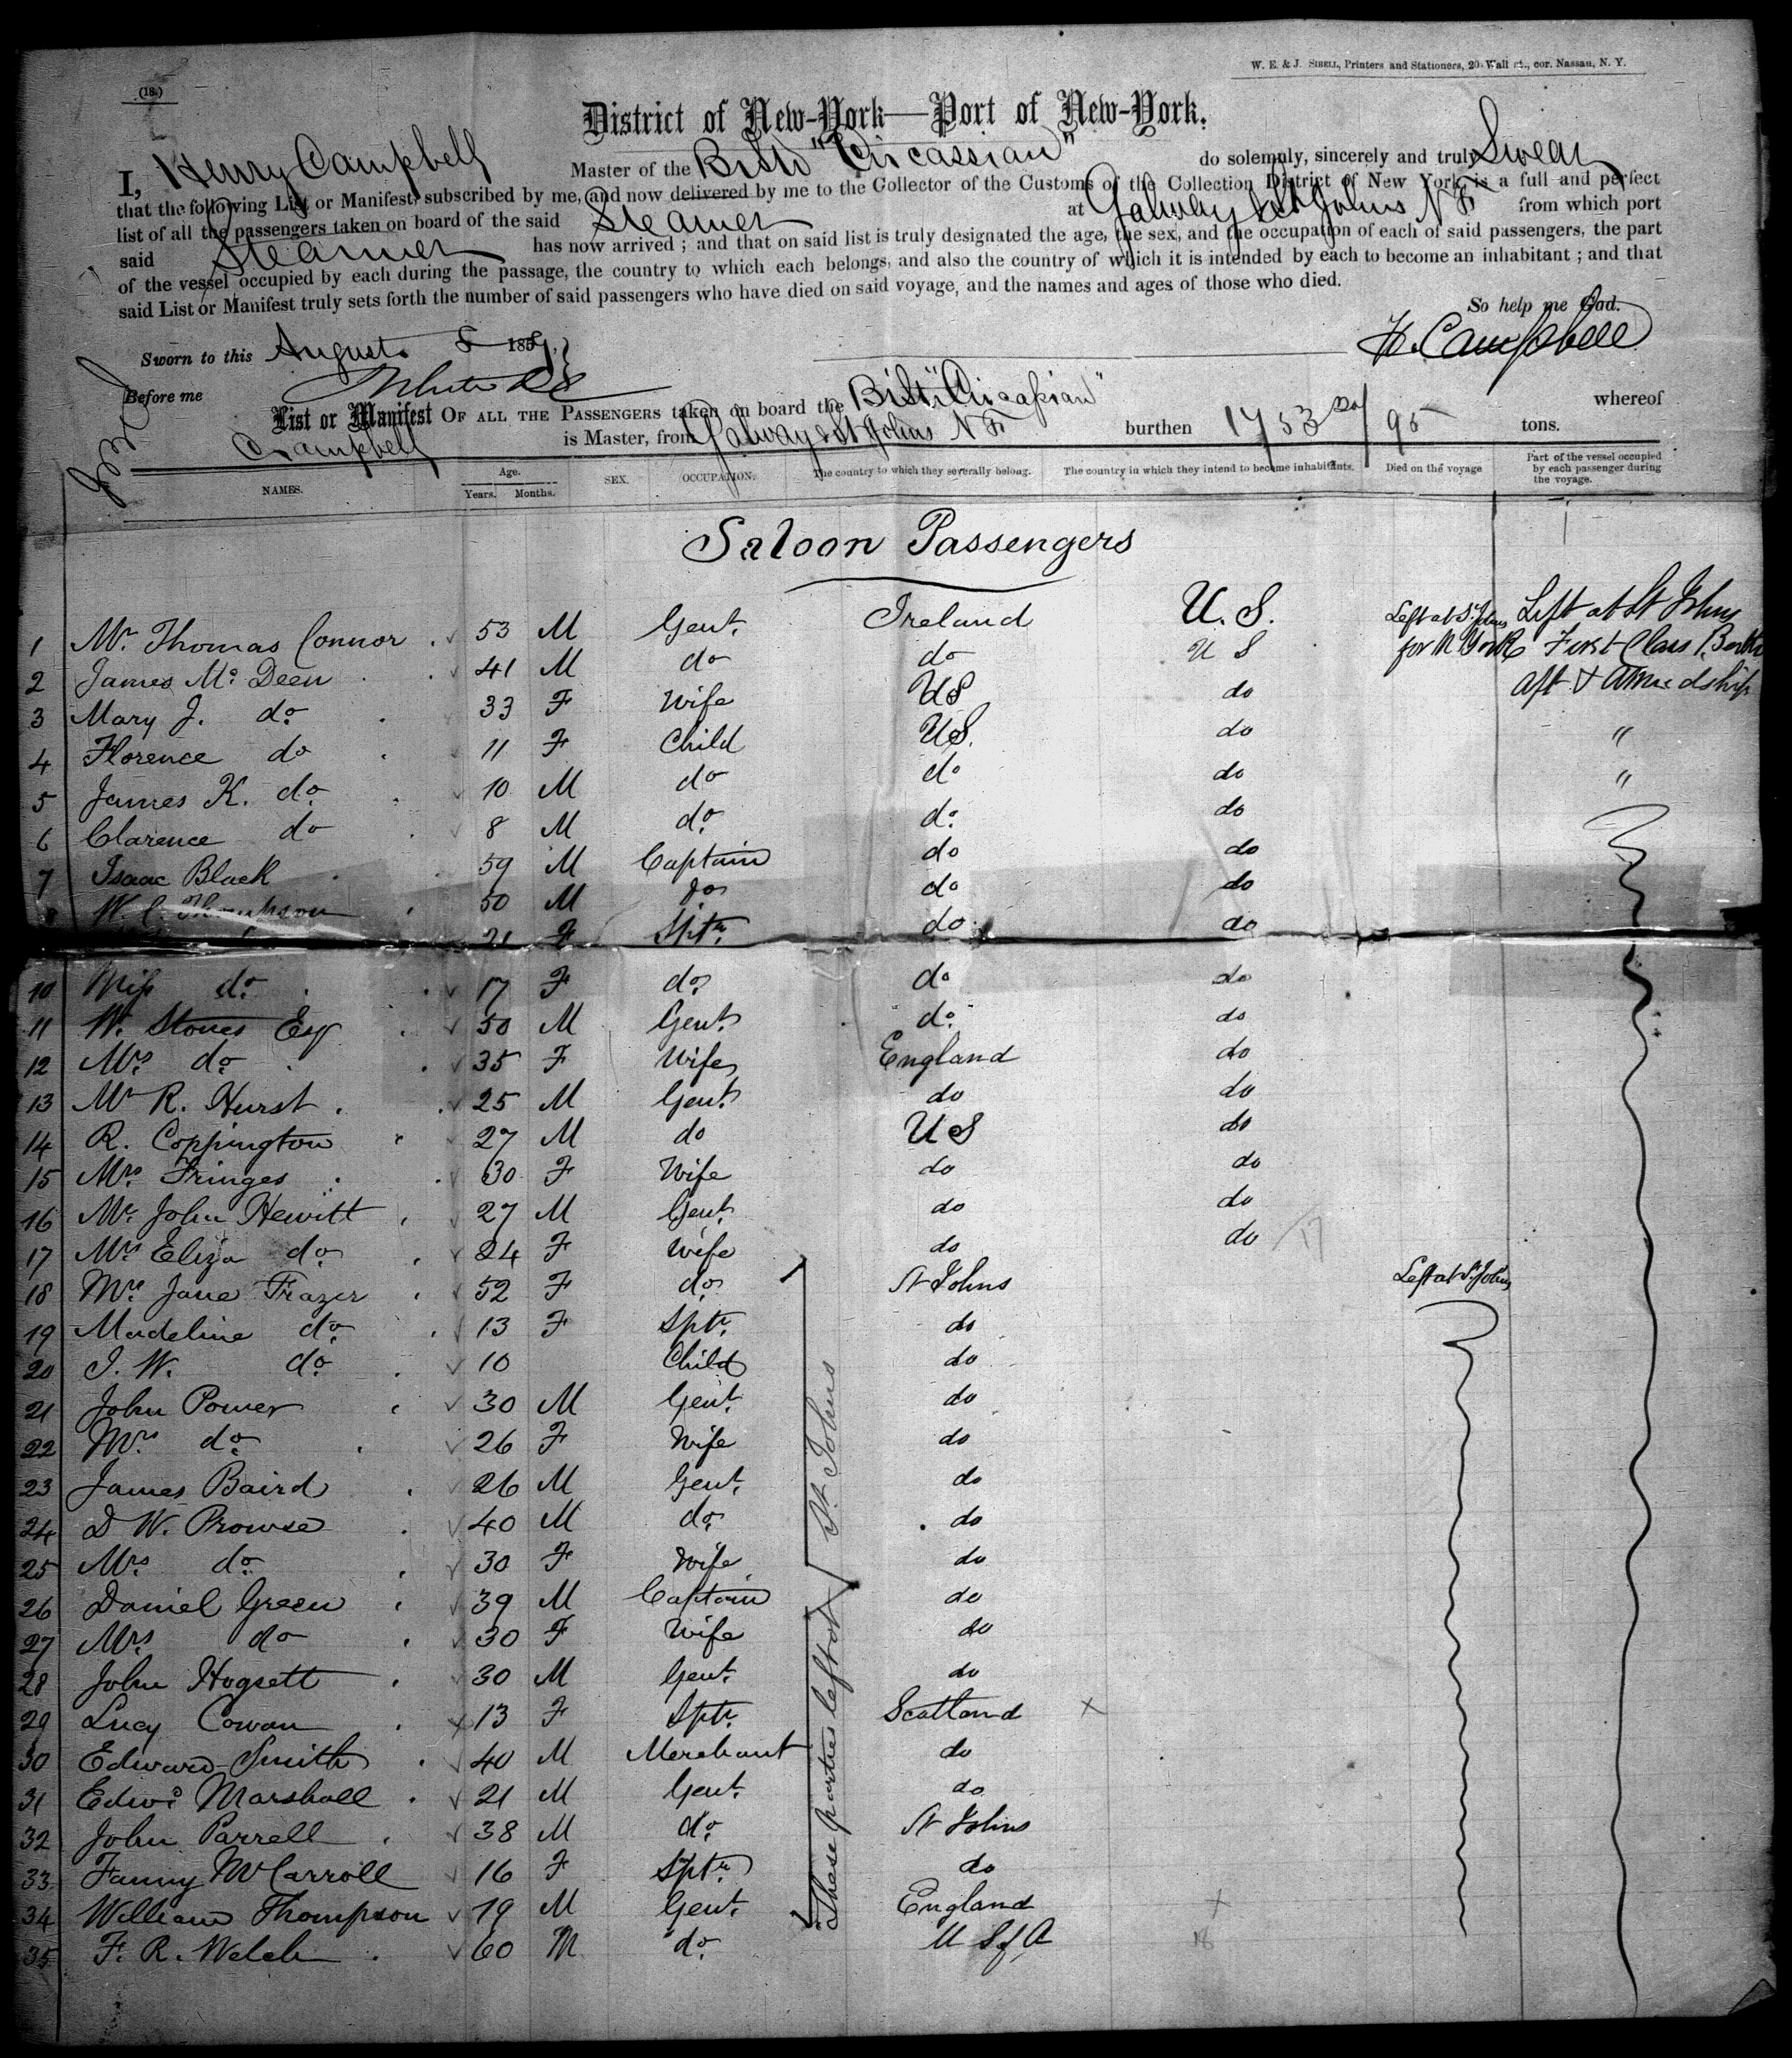 W. E. & J. SIBELL, Printers and Stationers, 20 Wall st., cor. Nassau, N. Y.
(18.)
District of New-York—Port of New-York.
I, Henry Campbell Master of the "Circassian" do solemnly, sincerely and truly Swear
that the following List or Manifest, subscribed by me, and now delivered by me to the Collector of the Customs of the Collection District of New York, is a full and perfect
list of all the passengers taken on board of the said Steamer at Galway & St Johns N F from which port
said Steamer has now arrived ; and that on said list is truly designated the age, the sex, and the occupation of each of said passengers, the part
of the vessel occupied by each during the passage, the country to which each belongs, and also the country of which it is intended by each to become an inhabitant ; and that
said List or Manifest truly sets forth the number of said passengers who have died on said voyage, and the names and ages of those who died.
So help me God.
Sworn to this August 8 1859 H. Campbell
Before me
List or Manifest OF ALL THE PASSENGERS taken on board the "Circassian" whereof
Campbell is Master, from Galway & St Johns N F burthen 1753 /95 tons.
NAMES. Age. Years. Months. SEX. OCCUPATION. The country to which they severally belong. The country in which they intend to become inhabitants. Died on the voyage Part of the vessel occupied by each passenger during the voyage.
Saloon Passengers
1 Mr. Thomas Connor 53 M Gent. Ireland U.S. Left at St Johns Left at St Johns
2 James Mc Deen 41 M do do U S for N York First Class Berths
3 Mary J. do 33 F Wife US do aft & Amidship
4 Florence do 11 F Child US. do "
5 James K. do 10 M do do do "
6 Clarence do 8 M do do do
7 Isaac Black 59 M Captain do do
8 W. C. Thompson 50 M do do do
21 F Sptr. do do
10 Miss do 17 F do do do
11 W. Stones Esq 50 M Gent. do do
12 Mrs do 35 F Wife England do
13 Mr R. Hurst 25 M Gent. do do
14 R. Coppington 27 M do U S do
15 Mrs Fringes 30 F Wife do do
16 Mr. John Hewitt 27 M Gent. do do
17 Mrs Eliza do 24 F Wife do do 17
18 Mrs Jane Frazer 52 F do St Johns Left at St Johns
19 Madeline do 13 F Sptr. do
20 J. W. do 10 Child do
21 John Power 30 M Gent. do
22 Mrs do 26 F Wife do
23 James Baird 26 M Gent. do
24 D W. Prowse 40 M do do
25 Mrs do 30 F Wife do
26 Daniel Green 39 M Captain do
27 Mrs do 30 F Wife do
28 John Hogsett 30 M Gent. do
29 Lucy Cowan 13 F Sptr. Scotland x
30 Edward Smith 40 M Merchant do
31 Edwd Marshall 21 M Gent. do
32 John Parrell 38 M do St Johns
33 Fanny McCarroll 16 F Sptr. do
34 William Thompson 19 M Gent. England x
35 F. R. Welch 60 M do U S of A 18
These parties left at St. Johns